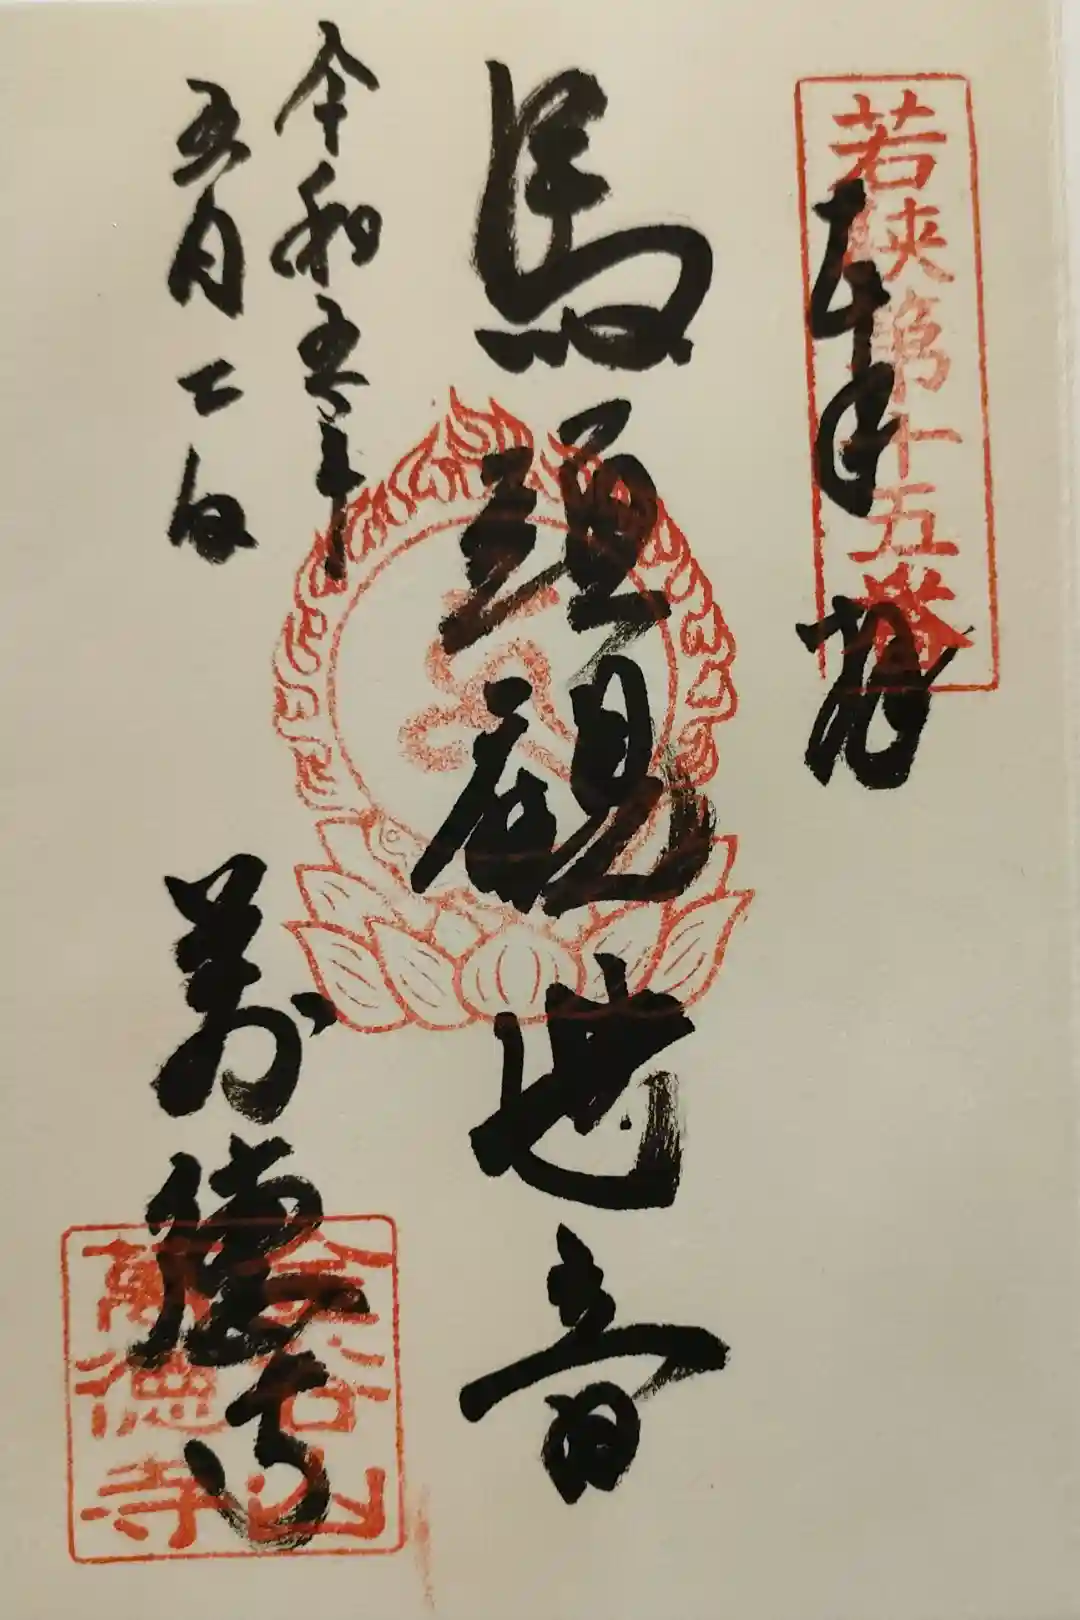 若狭第十五番
奉拝
馬頭観世音
令和五年
五月二日
萬徳寺
金谷山
萬德寺